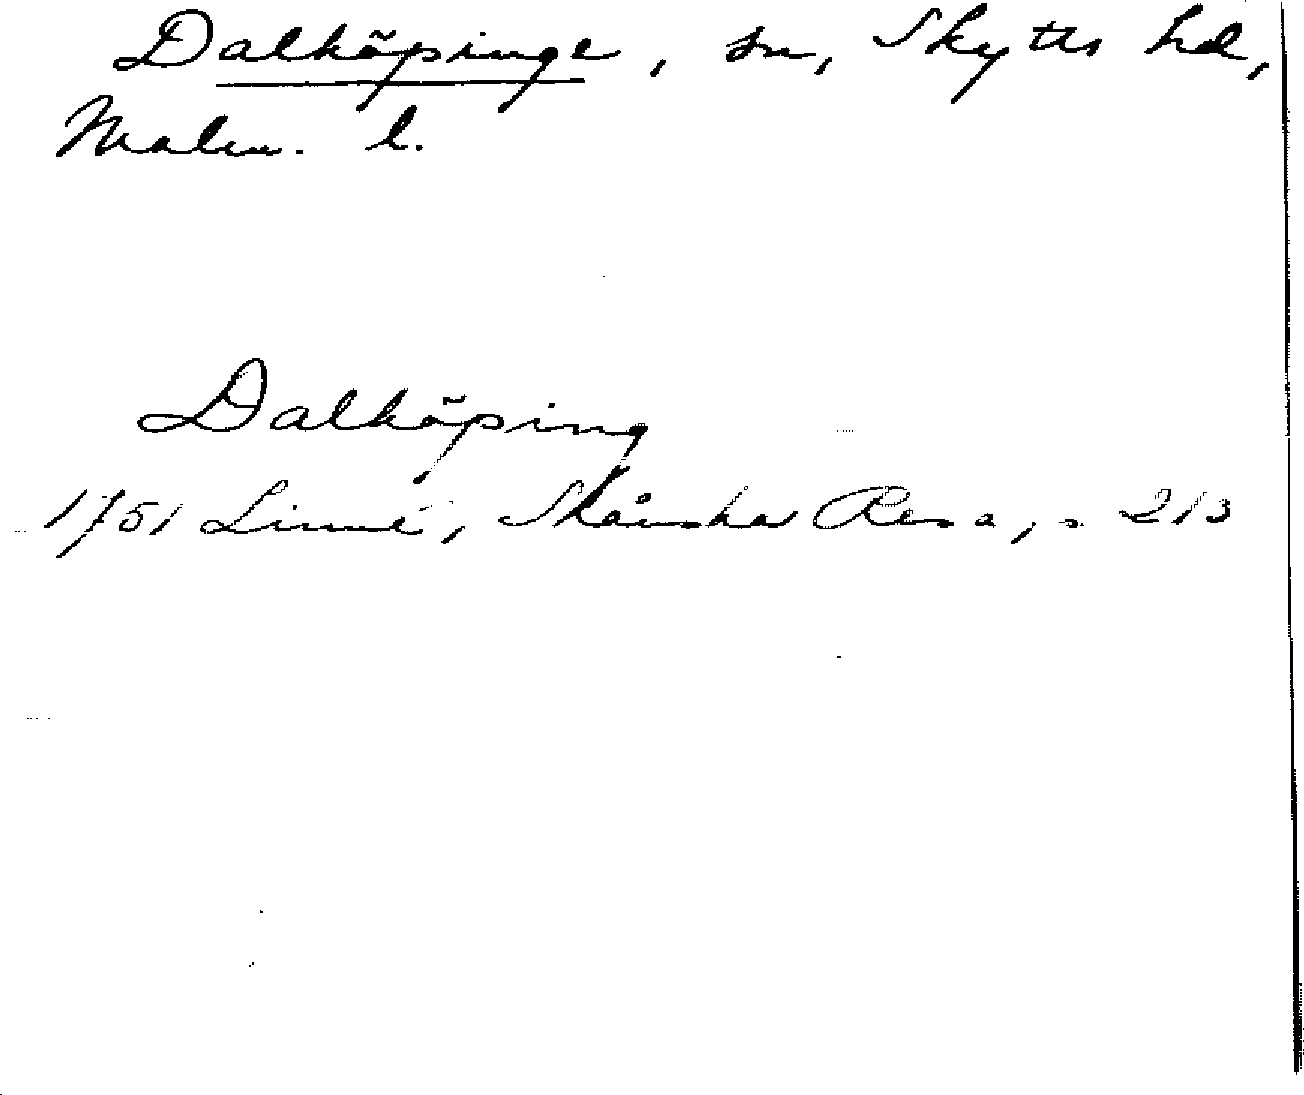 Dalköpinge, sn, Skytts hd,
Malm. l.
Dalköping
1751 Linné, Skånska Resa, s 213